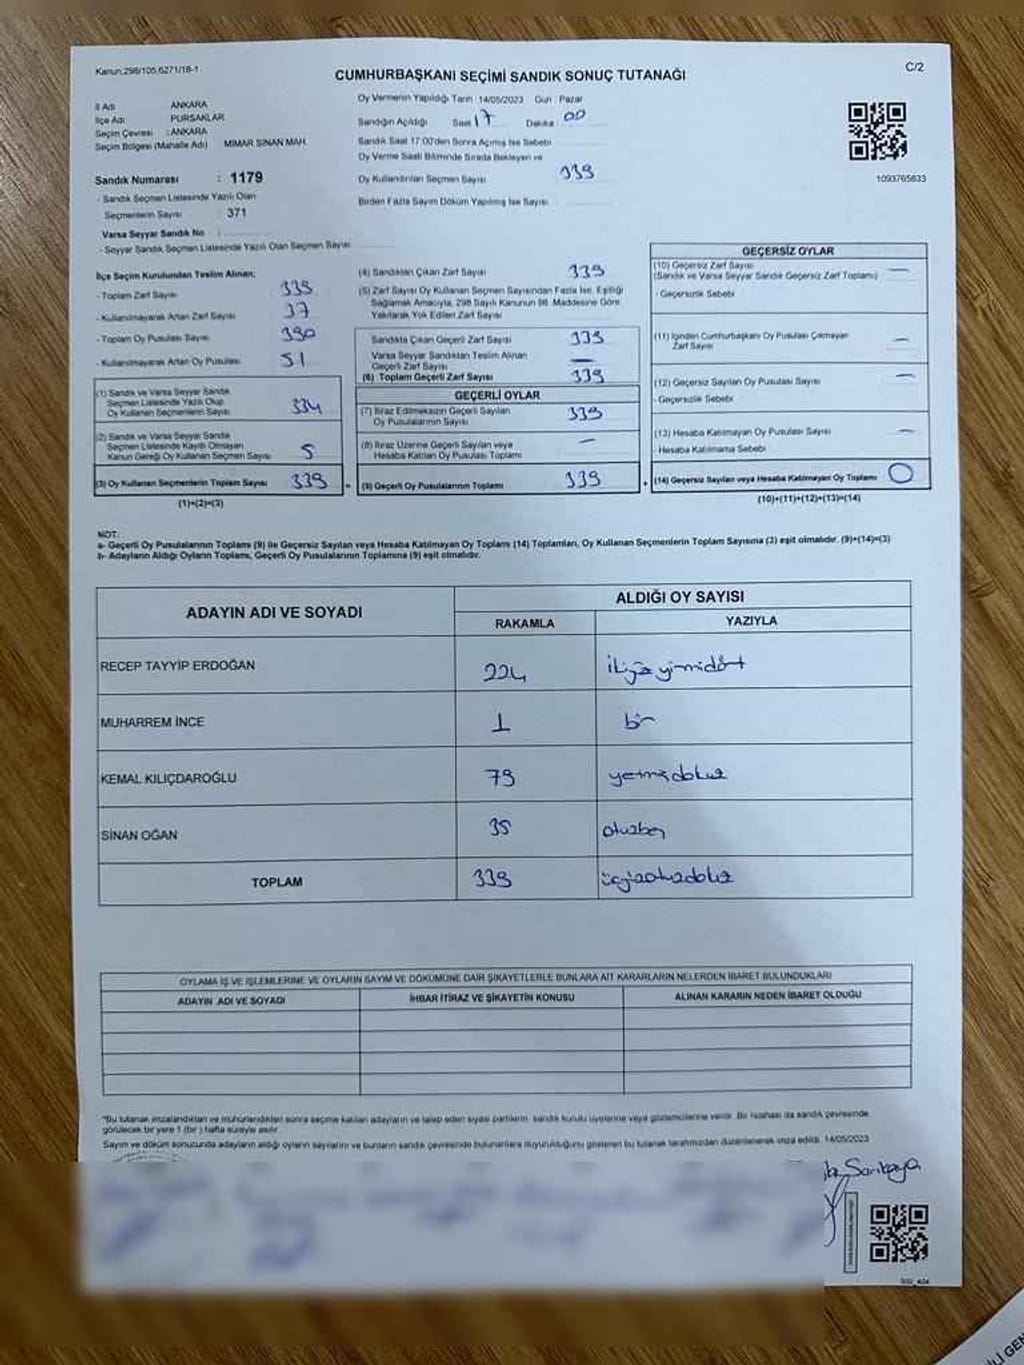 Kanun:298/105,6271/18-1
C/2
CUMHURBAŞKANI SEÇİMİ SANDIK SONUÇ TUTANAĞI
İl Adı ANKARA
İlçe Adı PURSAKLAR
Seçim Çevresi : ANKARA
Seçim Bölgesi (Mahalle Adı) MİMAR SİNAN MAH.
Sandık Numarası : 1179
- Sandık Seçmen Listesinde Yazılı Olan
Seçmenlerin Sayısı : 371
Varsa Seyyar Sandık No :
- Seyyar Sandık Seçmen Listesinde Yazılı Olan Seçmen Sayısı
Oy Vermenin Yapıldığı Tarih : 14/05/2023 Gün : Pazar
Sandığın Açıldığı Saat 17 Dakika : 00
Sandık Saat 17:00'den Sonra Açılmış İse Sebebi
Oy Verme Saati Bitiminde Sırada Bekleyen ve
Oy Kullandırılan Seçmen Sayısı 339
Birden Fazla Sayım Döküm Yapılmış İse Sayısı
1093765833
İlçe Seçim Kurulundan Teslim Alınan;
- Toplam Zarf Sayısı
- Kullanılmayarak Artan Zarf Sayısı 37
- Toplam Oy Pusulası Sayısı 390
- Kullanılmayarak Artan Oy Pusulası 51
(1) Sandık ve Varsa Seyyar Sandık
Seçmen Listesinde Yazılı Olup
Oy Kullanan Seçmenlerin Sayısı 334
(2) Sandık ve Varsa Seyyar Sandık
Seçmen Listesinde Kayıtlı Olmayan
Kanun Gereği Oy Kullanan Seçmen Sayısı 5
(3) Oy Kullanan Seçmenlerin Toplam Sayısı 339
(1)+(2)=(3)
(4) Sandıktan Çıkan Zarf Sayısı 339
(5) Zarf Sayısı Oy Kullanan Seçmen Sayısından Fazla İse, Eşitliği
Sağlamak Amacıyla, 298 Sayılı Kanunun 98. Maddesine Göre
Yakılarak Yok Edilen Zarf Sayısı
Sandıkta Çıkan Geçerli Zarf Sayısı 339
Varsa Seyyar Sandıktan Teslim Alınan
Geçerli Zarf Sayısı —
(6) Toplam Geçerli Zarf Sayısı 339
GEÇERLİ OYLAR
(7) İtiraz Edilmeksizin Geçerli Sayılan
Oy Pusulalarının Sayısı 339
(8) İtiraz Üzerine Geçerli Sayılan veya
Hesaba Katılan Oy Pusulası Toplamı —
(9) Geçerli Oy Pusulalarının Toplamı 339
GEÇERSİZ OYLAR
(10) Geçersiz Zarf Sayısı
(Sandık ve Varsa Seyyar Sandık Geçersiz Zarf Toplamı) —
- Geçersizlik Sebebi
(11) İçinden Cumhurbaşkanı Oy Pusulası Çıkmayan
Zarf Sayısı —
(12) Geçersiz Sayılan Oy Pusulası Sayısı —
- Geçersizlik Sebebi
(13) Hesaba Katılmayan Oy Pusulası Sayısı —
- Hesaba Katılmama Sebebi
(14) Geçersiz Sayılan veya Hesaba Katılmayan Oy Toplamı 0
(10)+(11)+(12)+(13)=(14)
NOT:
a- Geçerli Oy Pusulalarının Toplamı (9) ile Geçersiz Sayılan veya Hesaba Katılmayan Oy Toplamı (14) Toplamları, Oy Kullanan Seçmenlerin Toplam Sayısına (3) eşit olmalıdır. (9)+(14)=(3)
b- Adayların Aldığı Oyların Toplamı, Geçerli Oy Pusulalarının Toplamına (9) eşit olmalıdır.
ADAYIN ADI VE SOYADI
ALDIĞI OY SAYISI
RAKAMLA YAZIYLA
RECEP TAYYİP ERDOĞAN 224 ikiyüzyirmidört
MUHARREM İNCE 1 bir
KEMAL KILIÇDAROĞLU 79 yetmişdokuz
SİNAN OĞAN 35 otuzbeş
TOPLAM 339 üçyüzotuzdokuz
OYLAMA İŞ VE İŞLEMLERİNE VE OYLARIN SAYIM VE DÖKÜMÜNE DAİR ŞİKAYETLERLE BUNLARA AİT KARARLARIN NELERDEN İBARET BULUNDUKLARI
ADAYIN ADI VE SOYADI İHBAR İTİRAZ VE ŞİKAYETİN KONUSU ALINAN KARARIN NEDEN İBARET OLDUĞU
"Bu tutanak imzalandıktan ve mühürlendikten sonra seçime katılan adayların ve talep eden siyasi partilerin sandık kurulu üyelerine veya gözlemcilerine verilir. Bir nüshası da sandık çevresinde
görülecek bir yere 1 (bir) hafta süreyle asılır.
Sayım ve döküm sonucunda adayların aldığı oyların sayılarını ve bunların sandık çevresinde bulunanlara duyurulduğunu gösteren bu tutanak tarafımızdan düzenlenerek imza edildi. 14/05/2023
Sarıkaya